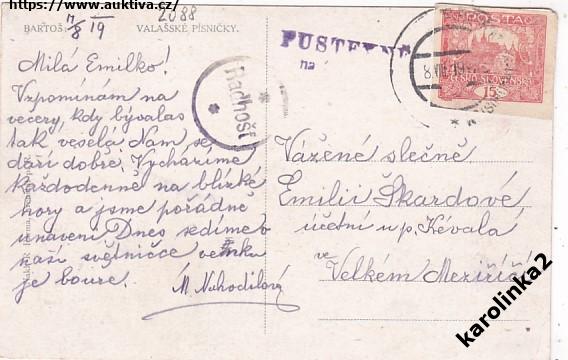 https://www.auktiva.cz/
2588
11/8 19
BARTOŠ:
VALAŠSKÉ PÍSNIČKY.
Milá Emilko!
Vzpomínám na
večery, kdy bývalas
tak veselá. Nám se
daří dobře. Vycházíme
každodenně na blízké
hory a jsme pořádně
unaveni Dnes sedíme v
naší světničce venku
je bouře.
M Nuhodilová
Radhošť
PUSTEVNE
na
8.VIII.19
POŠTA
ČESKO-SLOVENSKÁ
15
Vážené slečně
Emilii Škardové
účetní u p. Kévala
ve
Velkém Meziříčí
karolinka2